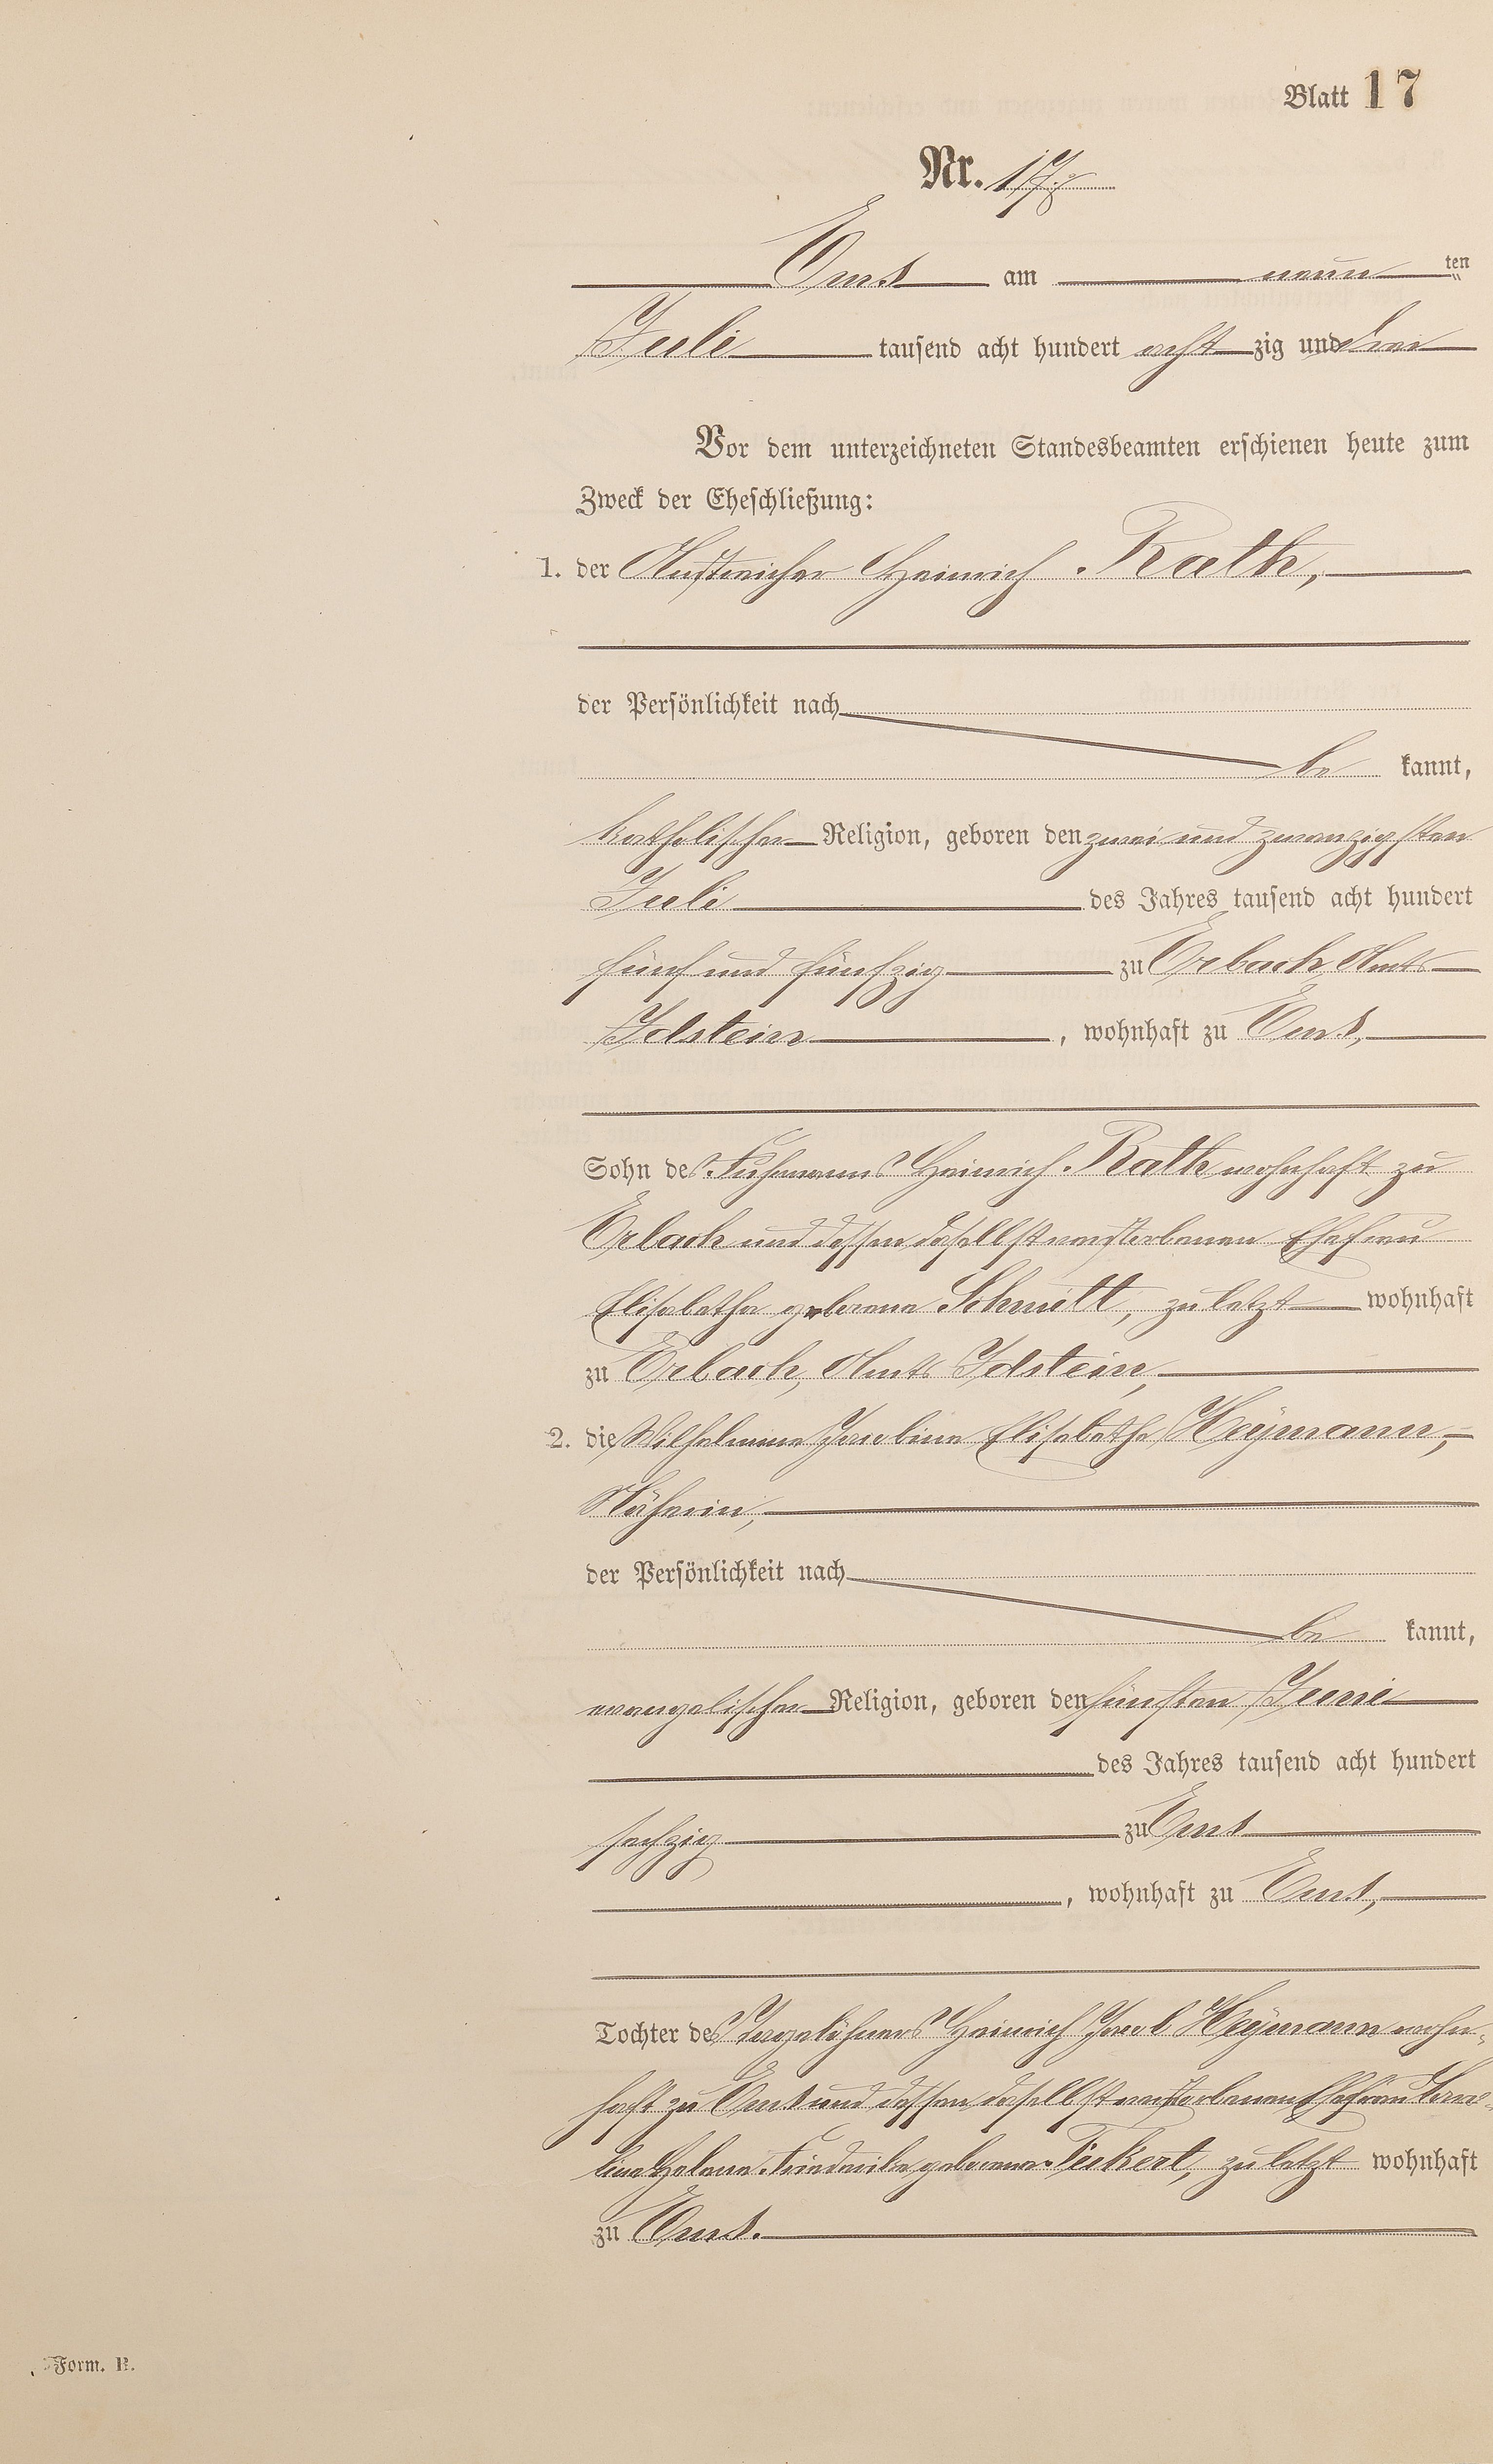 Blatt 17
Nr. 17.
Ems am neun ten
Juli tausend acht hundert acht zig und drei
Vor dem unterzeichneten Standesbeamten erschienen heute zum
Zweck der Eheschließung:
1. der Anstreicher Heinrich Rath,
der Persönlichkeit nach
be kannt,
katholischer Religion, geboren den zwei und zwanzigsten
Juli des Jahres tausend acht hundert
fünf und fünfzig zu Erbach, Amts
Idstein, wohnhaft zu Ems,
Sohn des Fuhrmanns Heinrich Rath wohnhaft zu
Erbach und dessen daselbst verstorbenen Ehefrau
Elisabetha geborene Schmitt, zuletzt wohnhaft
zu Erbach, Amts Idstein,
2. die Wilhelmine Jacobine Elisabetha Heymann,
Näherin,
der Persönlichkeit nach
be kannt,
evangelischer Religion, geboren den fünften Juni
des Jahres tausend acht hundert
sechzig zu Ems
, wohnhaft zu Ems,
Tochter des Tagelöhners Heinrich Jacob Heymann wohn-
haft zu Ems und dessen daselbst verstorbenen Ehefrau Karo-
line Helene Friedericke geborene Fickert, zuletzt wohnhaft
zu Ems.
Form. B.